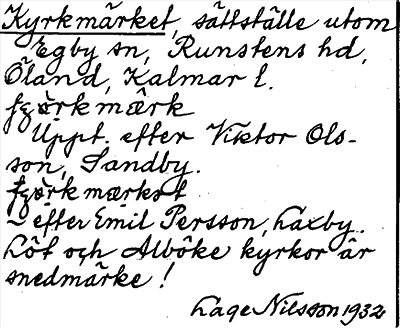 Kyrkmärket, sättställe utom
Egby sn, Runstens hd,
Öland, Kalmar l.
Uppt. efter Viktor Ols-
son, Sandby.
– efter Emil Persson, Laxby.
Löt och Alböke kyrkor är
snedmärke!
Lage Nilsson 1932